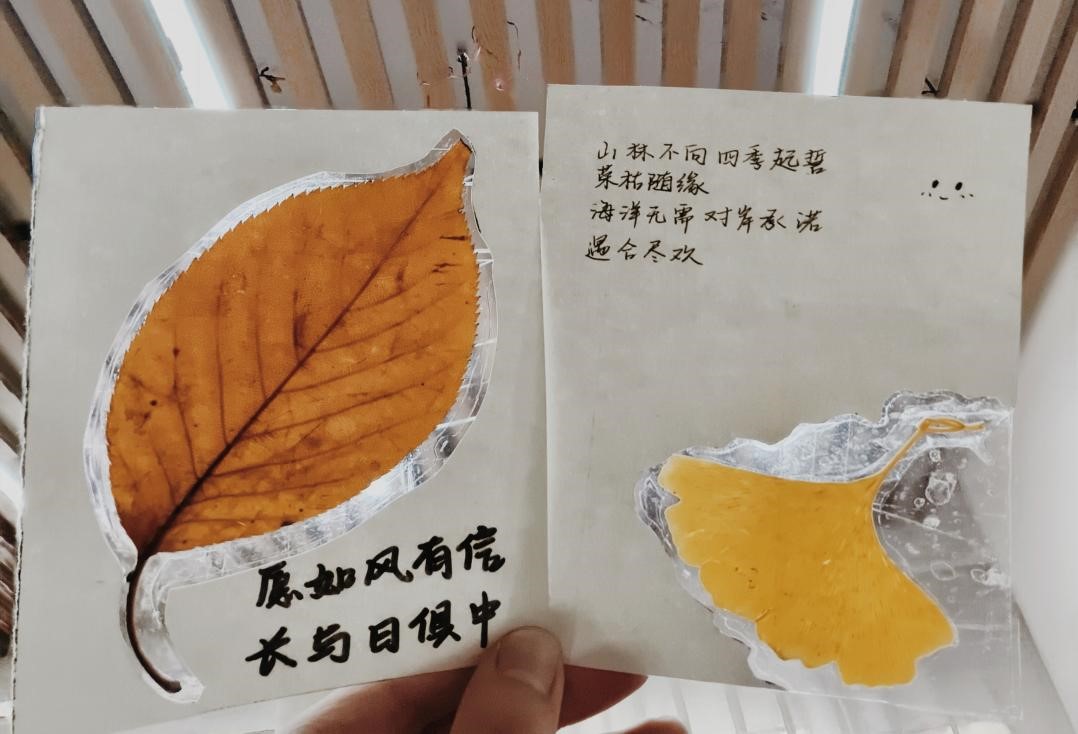 愿如风有信
长与日俱中
山林不向四季起誓
荣枯随缘
海洋无需对岸承诺
遇合尽欢